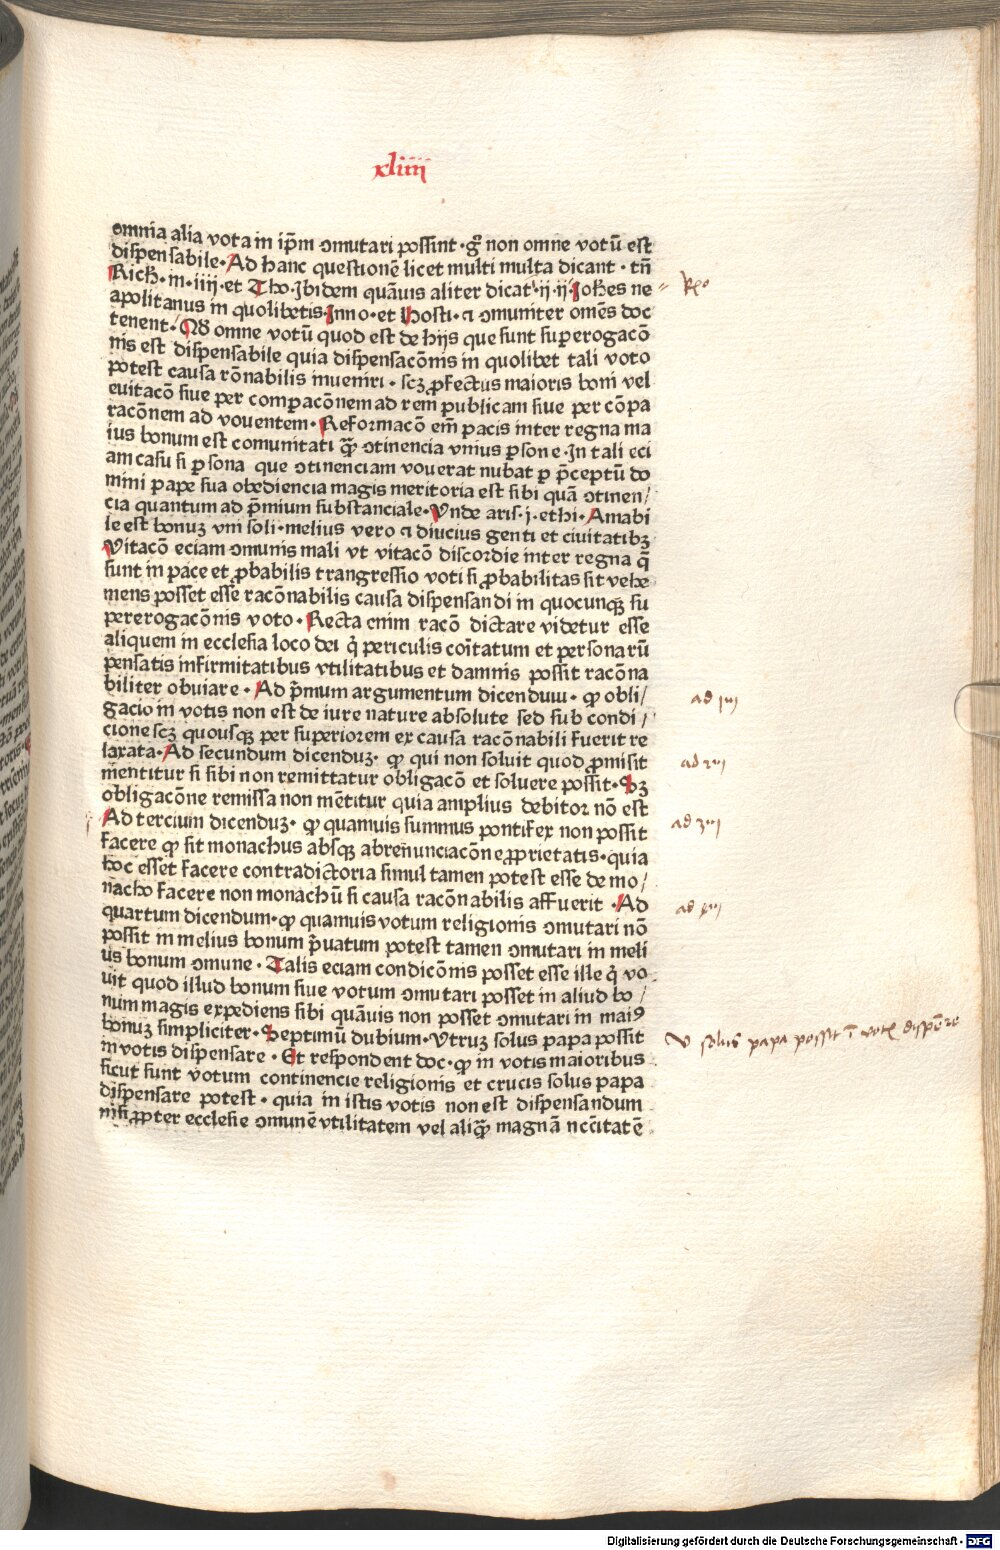 xliiii
omnia alia vota in ip̄m ɔmutari possint · gͦ non omne votū est
dispensabile · Ad hanc questionē licet multi multa dicant · tñ
Rich̄ · m · iiij · et Tho · Ibidem quāuis aliter dicat · ij · ij · Joh̄es ne
apolitanus in quolibetis · Inno · et Hosti · ⁊ ɔmuniter omēs doc
tenent · Qꝺ omne votū quod est de hijs que sunt suꝑerogacō
nis est dispensabile quia dispensacōnis in quolibet tali voto
potest causa rōnabilis inueniri · scꝫ ꝓfectus maioris boni vel
euitacō siue per comꝑacōnem ad rem publicam siue per cōpa
racōnem ad vouentem · Reformacō em̄ pacis inter regna ma
ius bonum est comunitati qͣꝫ ɔtinencia vnius ꝑsone · In tali eci
am casu si ꝑsona que ɔtinenciam vouerat nubat ꝑ p̄ceptū do
mini pape sua obediencia magis meritoria est sibi quā ɔtinen/
cia quantum ad p̄mium substanciale · Vnde aris · j · ethi · Amabi
le est bonuꝫ vni soli · melius vero ⁊ diucius genti et ciuitatibꝫ
Vitacō eciam ɔmunis mali vt vitacō discordie inter regna q̄
sunt in pace et ꝓbabilis trangressio voti si ꝓbabilitas sit vehe
mens posset esse racōnabilis causa dispensandi in quocunqꝫ su
pererogacōnis voto · Recta enim racō dictare videtur esse
aliquem in ecclesia loco dei q̇ periculis coītatum et personarū
pensatis infirmitatibus vtilitatibus et damnis possit racōna
biliter obuiare · Ad p̄mum argumentum dicendum · ꝙ obli/
gacio in votis non est de iure nature absolute sed sub condi/
cione scꝫ quousqꝫ per superiorem ex causa racōnabili fuerit re
laxata · Ad secundum dicenduꝫ · ꝙ qui non soluit quod ꝓmisit
mentitur si sibi non remittatur obligacō et soluere possit · Sꝫ
obligacōne remissa non mētitur quia amplius debitor nō est
Ad tercium dicenduꝫ · ꝙ quamuis summus pontifex non possit
facere ꝙ sit monachus absqꝫ abrenunciacōne ꝓprietatis · quia
hoc esset facere contradictoria simul tamen potest esse de mo/
nacho facere non monachū si causa racōnabilis affuerit · Ad
quartum dicendum · ꝙ quamuis votum religionis ɔmutari nō
possit in melius bonum p̄uatum potest tamen ɔmutari in meli
us bonum ɔmune · Talis eciam condicōnis posset esse ille q̇ vo
uit quod illud bonum siue votum ɔmutari posset in aliud bo/
num magis expediens sibi quāuis non posset ɔmutari in maiꝰ
bonuꝫ simpliciter · Septimū dubium · Vtruꝫ solus papa possit
in votis dispensare · Et respondent doc · ꝙ in votis maioribus
sicut sunt votum continencie religionis et crucis solus papa
dispensare potest · quia in istis votis non est dispensandum
nisi ꝓpter ecclesie ɔmunē vtilitatem vel aliqͣꝫ magnā nccītatē
ad
ad
ad
ad
solus papa possit ī
Digitalisierung gefördert durch die Deutsche Forschungsgemeinschaft · DFG